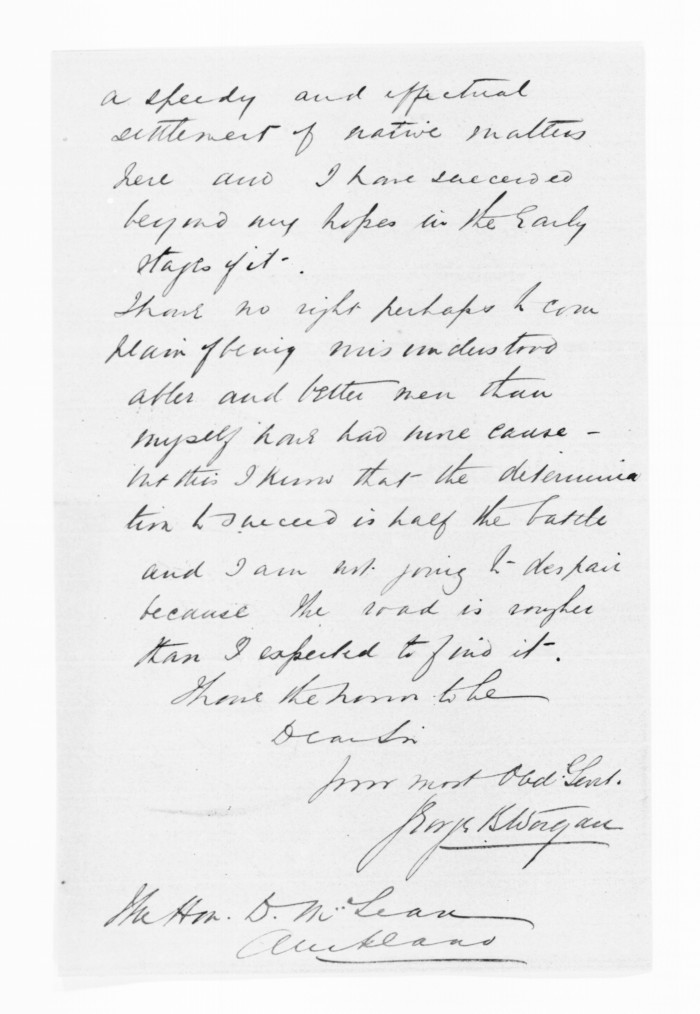 a speedy and effectual
settlement of native matters
here and I have succeeded
beyond my hopes in the Early
stages of it.
I have no right perhaps to com
plain of being misunderstood
abler and better men than
myself have had more cause –
but this I know that the determina
tion to succeed is half the battle
and I am not going to despair
because the road is rougher
than I expected to find it.
I have the honor to be
Dear Sir
Your most Obdt Servt.
George B Worgan
The Hon. D. McLean
Auckland